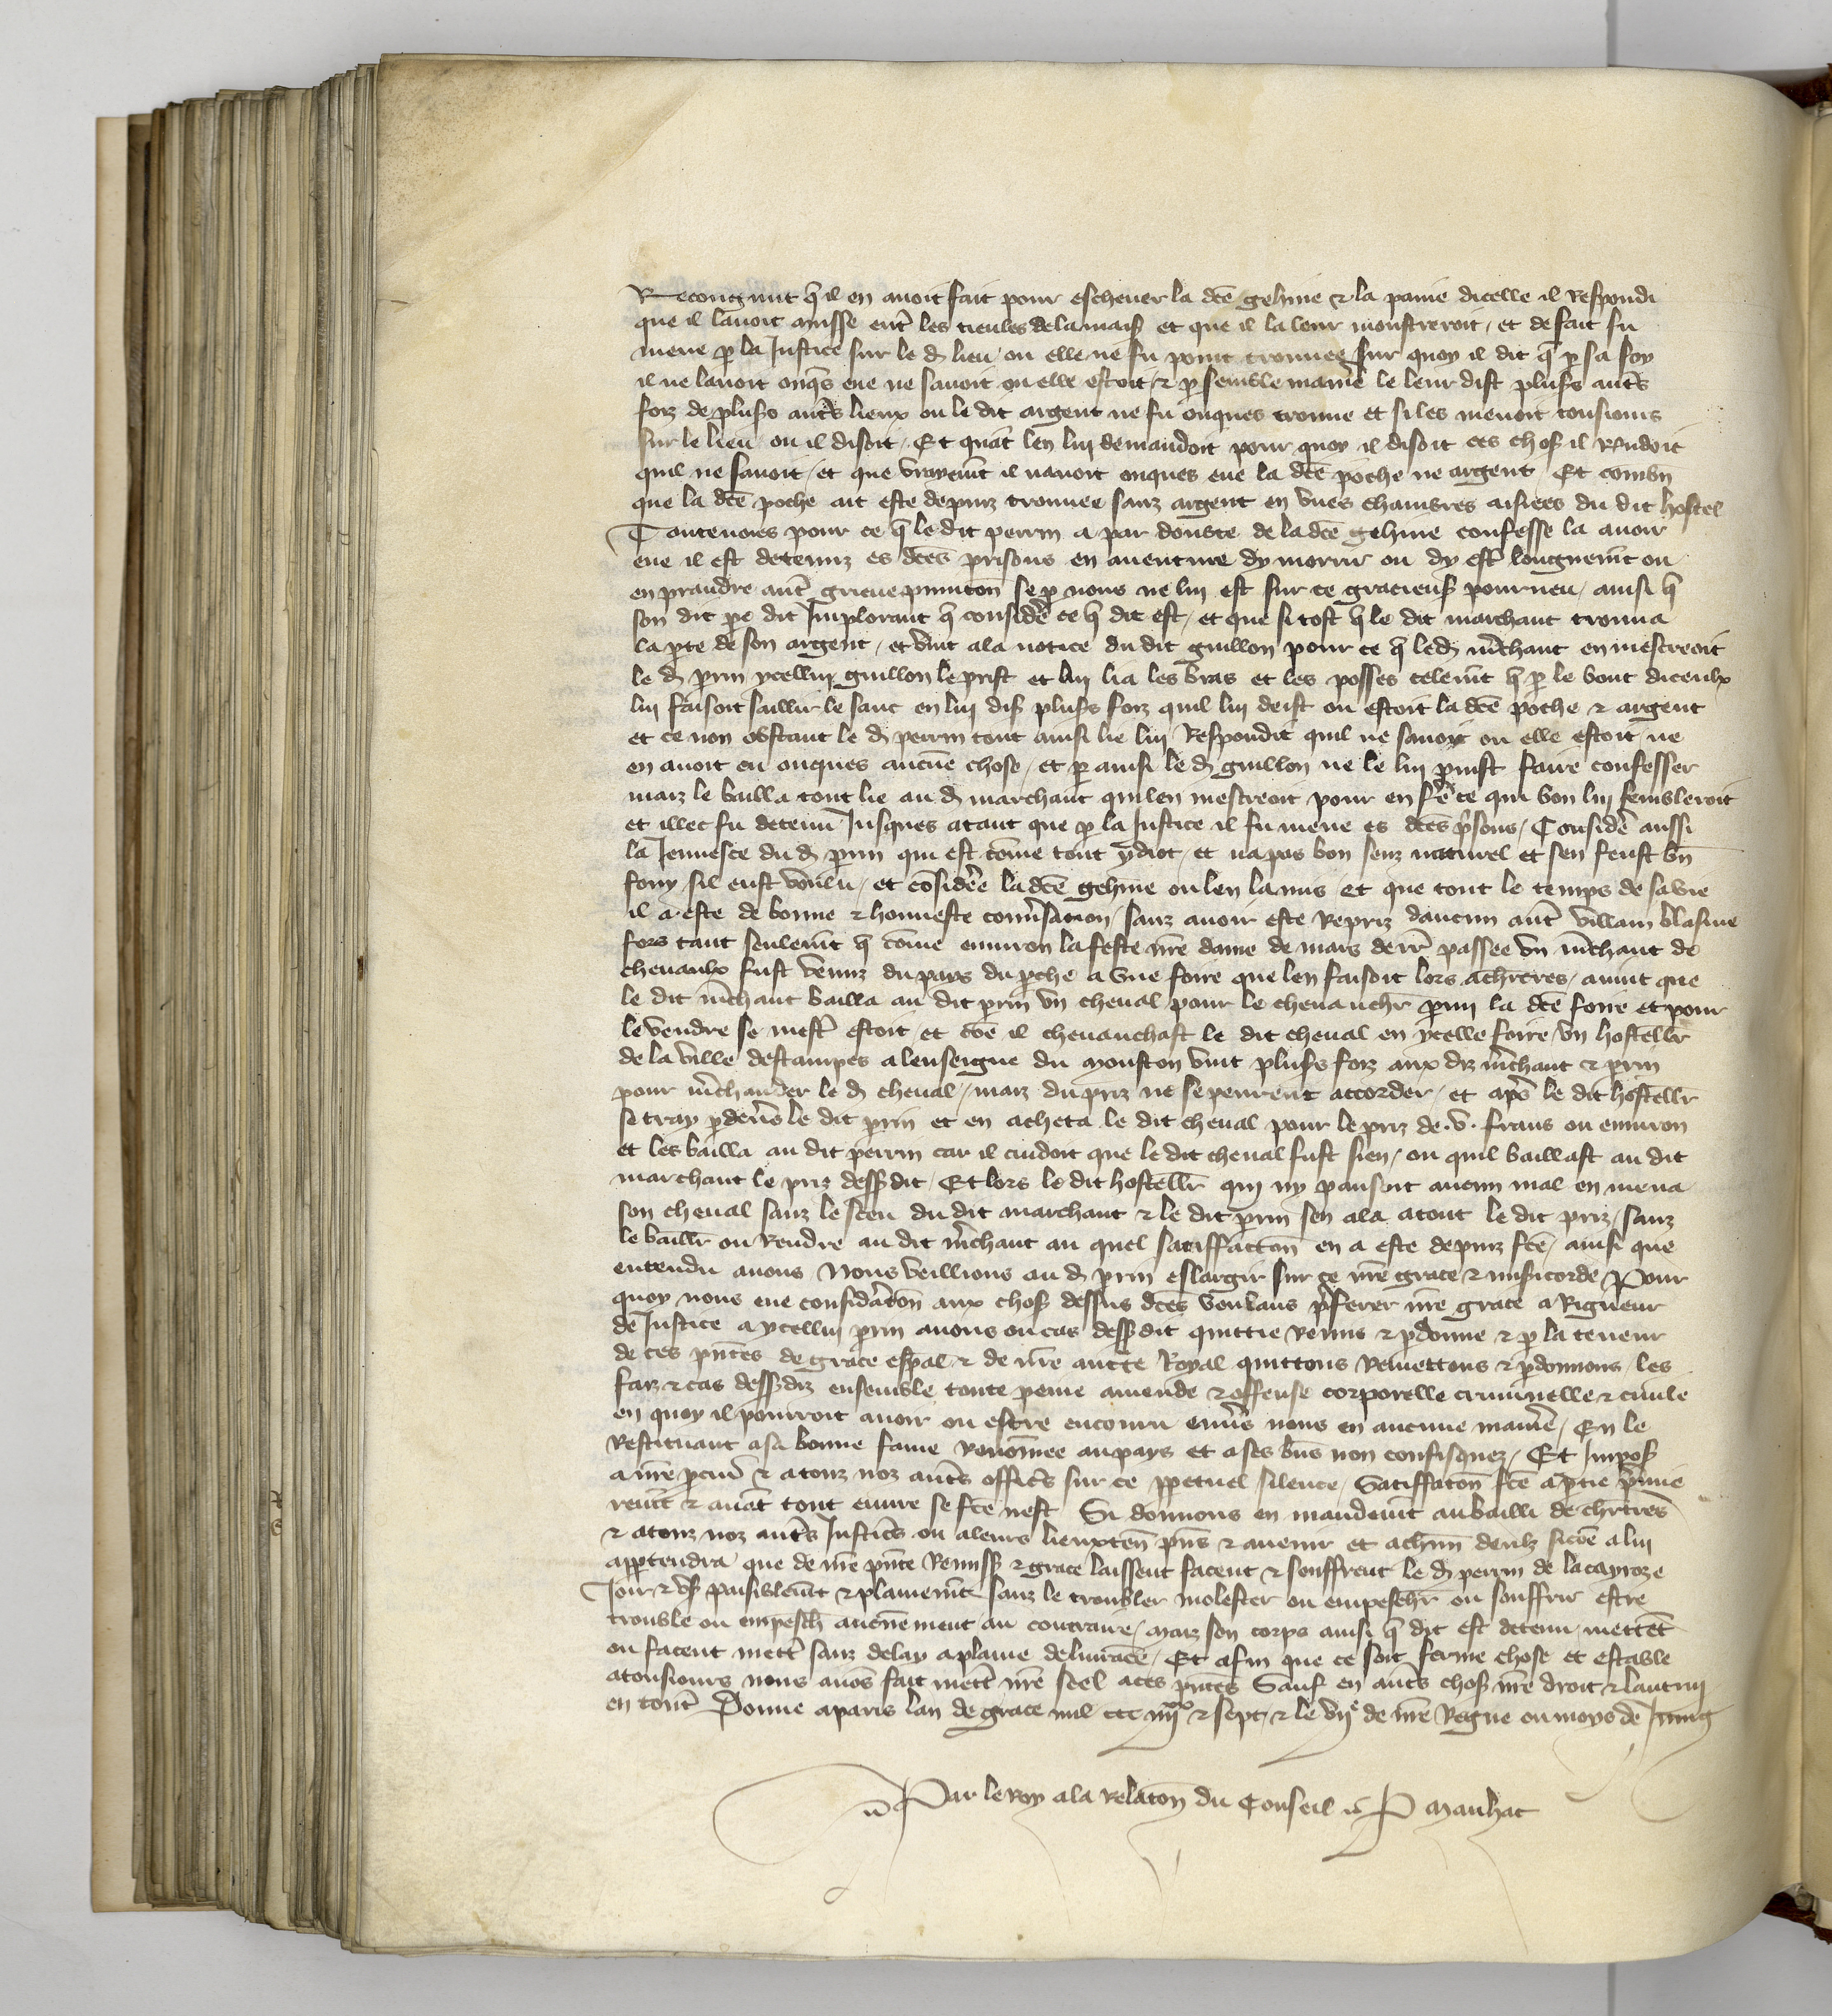 Recongnut q̃ il en auoit fait pour escheuer la dcẽ gehine & la paine dicelle il Respondi
que il lauoit musse entr̃ les tieules de la mais̃ et que il la leur monstreroit / et de fait fu
mene p̲ la Justice sur le d̃ lieu ou elle ne fu point trouuee sur quoy il dit q̃ p̲ sa foy
il ne lauoit onq̃s eue ne sauoit ou elle estoit / & p̲ semble manie᷑ le leur dist plus̃s aut᷑s
foiz de plus̃s aut᷑s lieux ou le dit argent ne fu onques trouue et si les menoit tousiours
sur le lieu ou il disoit / Et quãt len lui demandoit pour quoy il disoit ces chos̃ il R̃ndoit
quil ne sauoit / et que vrayem̃t il nauoit onques eue la dcẽ poche ne argent / Et combñ
que la dcẽ poche ait este depuiz trouuee sanz argent en vnes chambres aisiees du dit hostel
Toutenoies pour ce q̃ le dit perrin a par doubte de la dcẽ gehine confesse la auoir
eue il est detenuz es dcẽs prisons en auenture dy morir ou dy est᷑ longuem̃t ou
en prandre aut᷑ grieue punicõn se p̲ nous ne lui est sur ce gracieus̃ pourueu / ainsi q̃
son dit pe᷑ dit Implorant q̃ consider̃ ce q̃ dit est / et que si tost q̃ le dit marchant trouua
la p̲te de son argent / et vint a la notice du dit guillon pour ce q̃ led̃ m̃chant en mescreoit
le d̃ p̲rin ycellui guillon le prist et lui lia les bras et les posses telem̃t q̃ p̲ le bout diceulx
lui faisoit saillir le sanc en lui dis̃ plus̃s foiz quil lui deist ou estoit la dcẽ poche & argent
et ce non obstant le d̃ perrin tout ainsi lie lui Respondit quil ne sauoit ou elle estoit / ne
en auoit eu onques aucune chose / et p̲ ainsi le d̃ guillon ne le lui peust faire confesser
maiz le bailla tout lie au d̃ marchant qui len mescreoit pour en fe᷑ ce qui bon lui sembleroit
et illec fu detenu Jusques atant que p̲ la Justice il fu mene es dcẽs p᷑sons / Consider̃ aussi
la Jeunesce du d̃ p̲rin qui est cõme tout ydiot / et na pas bon senz naturel et sen feust bñ
fouy sil eust voulu / et cõsideree la dcẽ gehine ou len la mis et que tout le temps de sa vie
il a este de bonne & honneste conu᷑sacion sanz auoir este Repriz daucun aut᷑ villain blasme
fors tant seulem̃t q̃ cõme enuiron la feste nr̃e dame de mars derr᷑ passee vn m̃chant de
cheuaulx fust venuz du pays du p̲che a vne foire que len faisoit lors a chr̃tres / auint que
le dit m̃chant bailla au dit p̲rin vn cheual pour le cheuauchr᷑ p̲mi la dcẽ foire et pour
le vendre se mest᷑ estoit / et cõe il cheuauchast le dit cheual en ycelle foire / vn hostellr᷑
de la ville destampes a lenseigne du mouston vint plus̃s foiz aux diz m̃chant & p̲rin
pour m̃chander le d̃ cheual / maiz du priz ne se peurent accorder / et ap᷑s le dit hostellr᷑
se tray p̲deue᷑s le dit p̲rin et en acheta le dit cheual pour le priz de .v. frans ou enuiron
et les bailla au dit perrin car il cuidoit que le dit cheual fust sien / ou quil baillast au dit
marchant le priz dess̃dit / Et lors le dit hostellr᷑ qui ny pansoit aucun mal en mena
son cheual sanz le sceu du dit marchant & le dit p̲rin sen ala atout le dit priz / sanz
le baillr᷑ ou Rendre au dit m̃chant au quel satiffaccõn en a este depuiz fcẽ / ainsi que
entendu auons Nous veillions au d̃ p̲rin eslargir sur ce nr̃e grace & mis̃icorde / Pour
quoy nous eue consideracõn aux chos̃ dessus dcẽs voulans p᷑ferer nr̃e grace a Rigueur
de Justice a ycellui p̲rin auons ou cas dess̃dit quittie Remis & p̲donne & p̲ la teneur
de ces pñtes de grace esp̃al & de nr̃e auct̃e Royal quittons Remettons & p̲donnons / les
faiz & cas dess̃diz ensemble toute peine amende & offense corporelle criminelle & ciuile
en quoy il pourroit auoir ou estre encouru enue᷑s nous en aucune manie᷑ / En le
Restituant a sa bonne fame Renõmee au pays et a ses bñs non confisquez / Et Impos̃
a nr̃e p̲cur᷑ & a touz noz aut᷑s offic᷑s sur ce p̲petuel silence / Satiffacõn fcẽ a p̲tie p᷑mie
rem̃t & auãt tout euure se fcẽ nest Si donnons en mandem̃t au bailli de chr̃tres
& a touz noz aut᷑s Justic᷑s ou a leurs lieuxten̄ pñs & auenir et a chũn deulx si cõe a lui
app̲tendra que de nr̃e pñte Remiss̃ & grace laissent facent & souffrent le d̃ perrin de la cayroze
Joir & vs̃ paisiblem̃t & plainem̃t sanz le troubler molester ou empeschr᷑ ou souffrir estre
trouble ou empesch̃ aucunement au contraire / maiz son corps ainsi q̃ dit est detenu mettẽt
ou facent mett᷑ sanz delay a plaine deliuranc̃e / Et afin que ce soit ferme chose et estable
a tousiours nous auõs fait mett᷑ nr̃e seel a ces pñtes Sauf en aut᷑s chos̃ nr̃e droit & lautrui
en tout᷑ Donne a paris lan de grace mil ccc iiij^xx & sept / & le vij^e de nr̃e Regne ou moys de Juing
Par le Roy a la relacõn du Conseil P Manhac